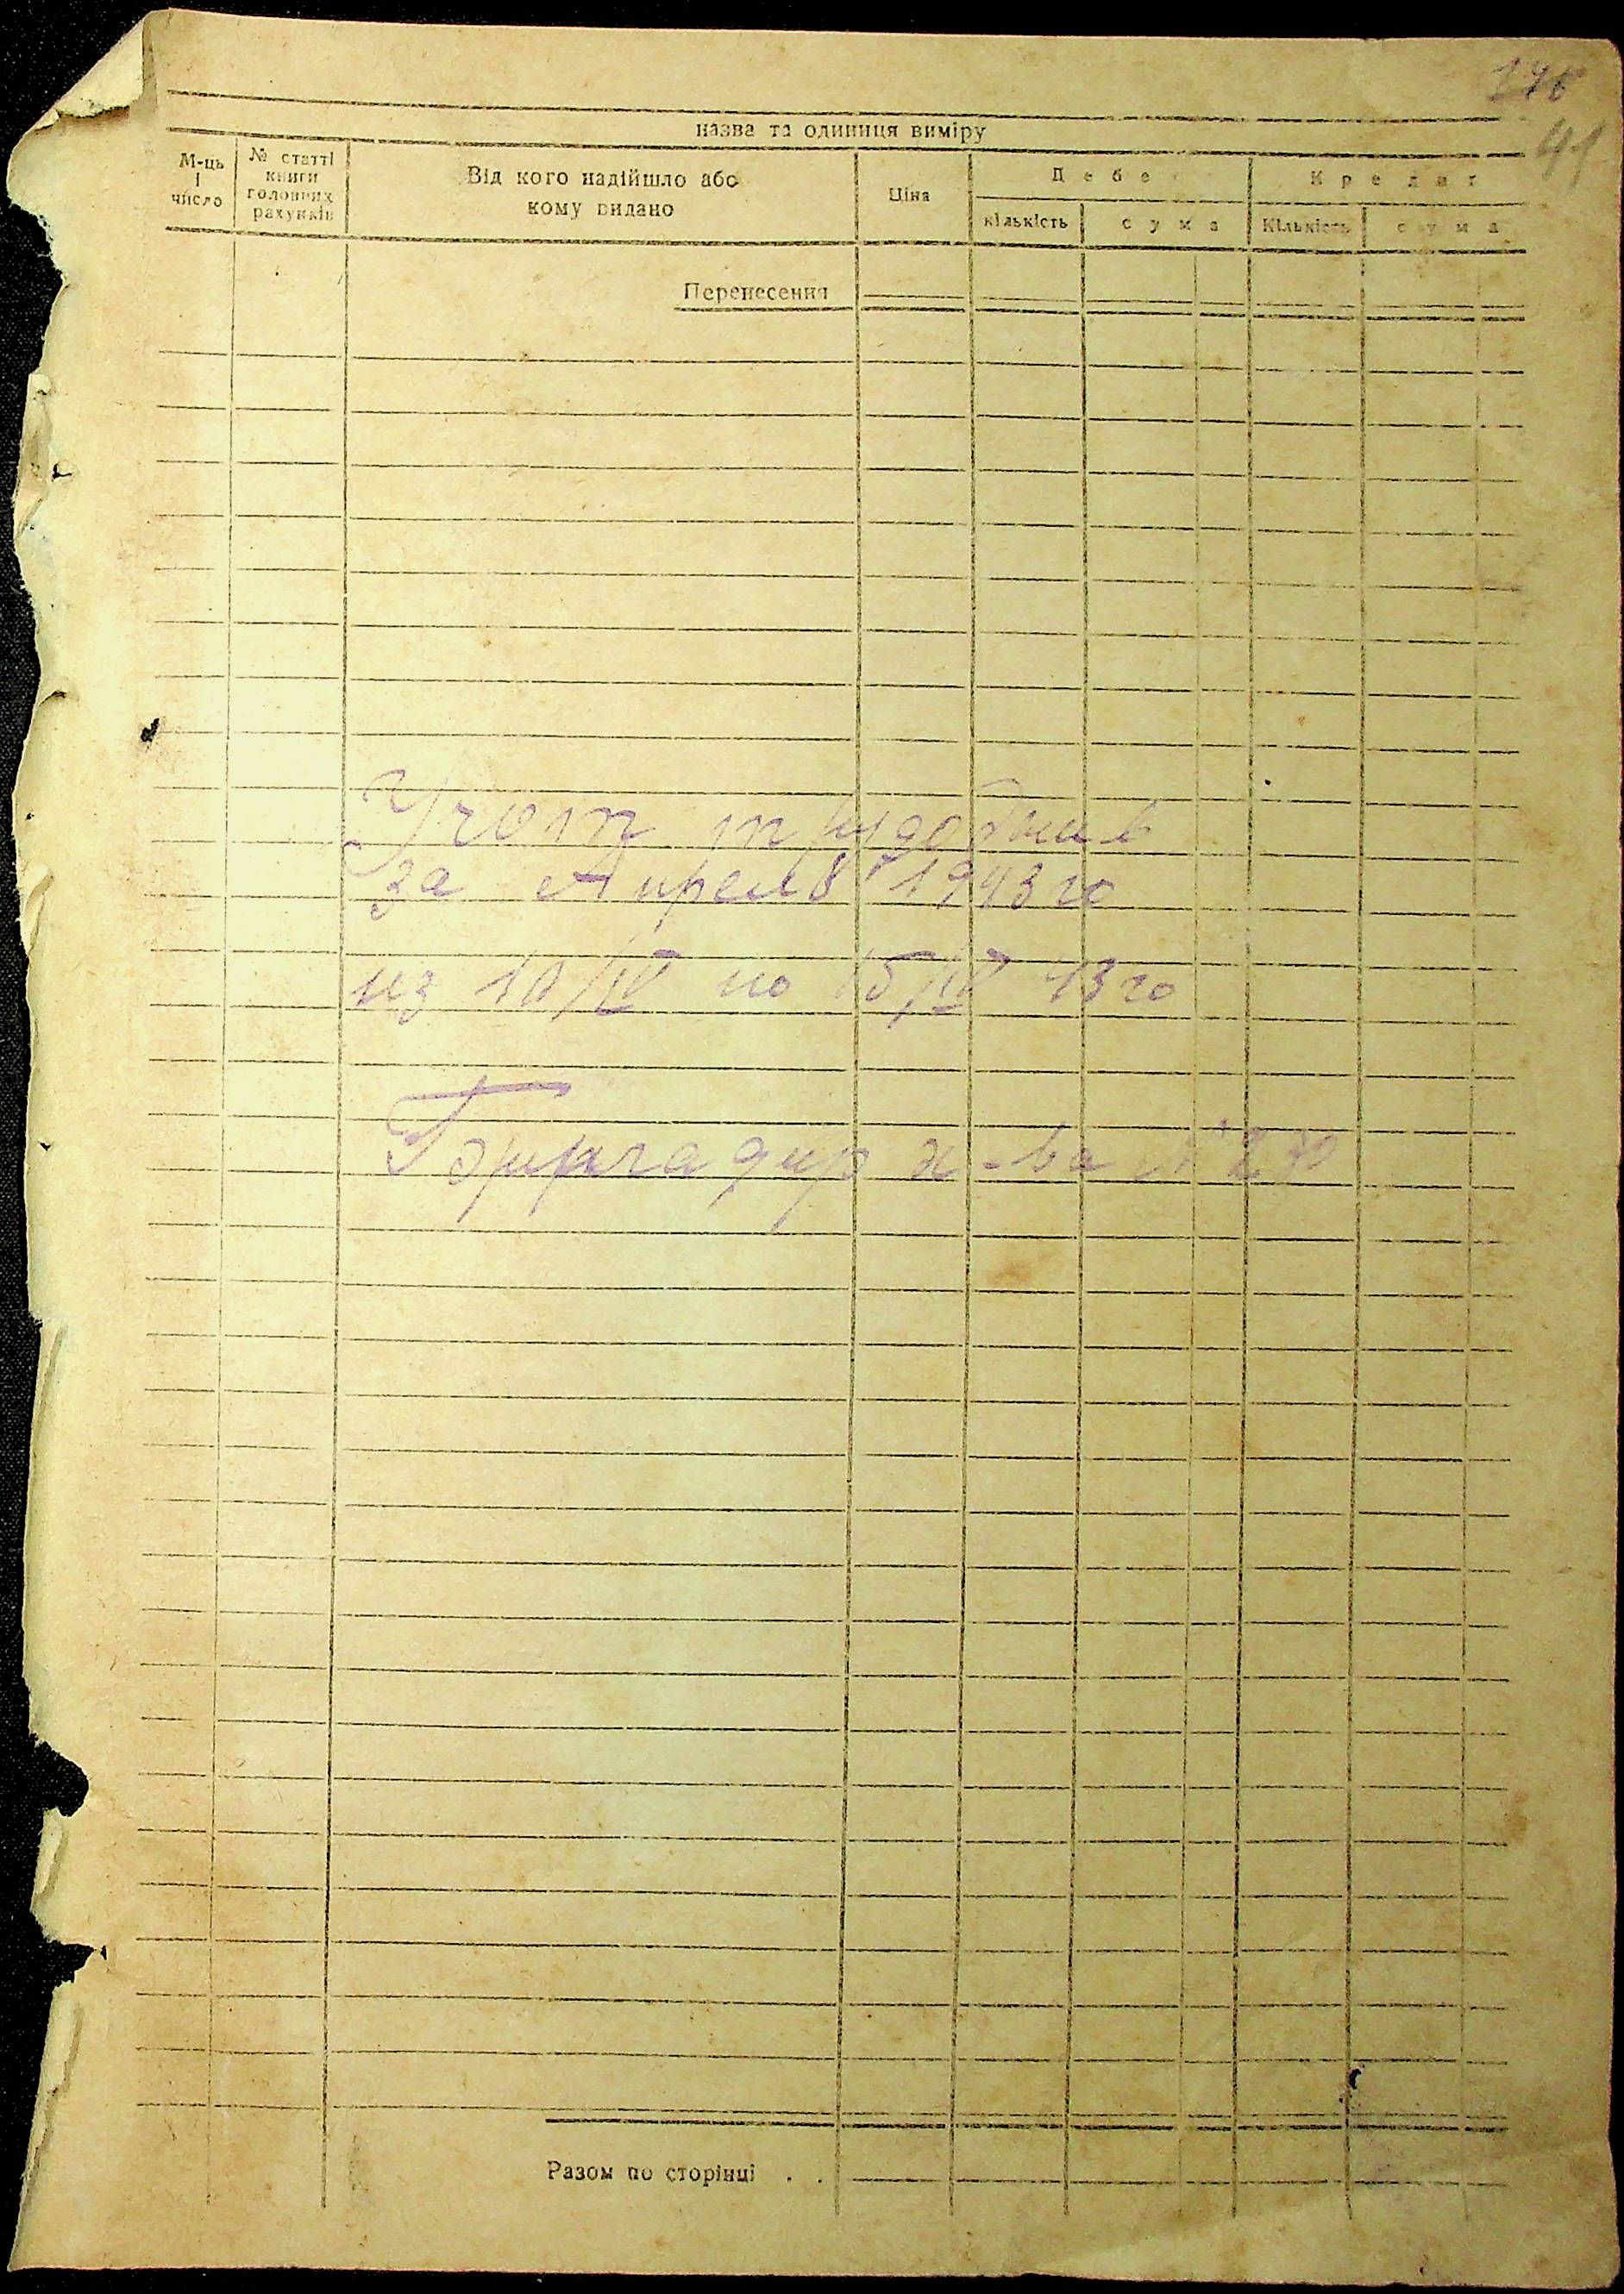 41
назва та одиниця виміру
М-ць і число
№ статті книги головних рахунків
Від кого надійшло або кому видано
Ціна
Дебе
Кредит
кількість
сума
Кількість
сума
Перенесення
Учот трудоднив
за Апрель 1943 го
из 10/IV по 15/IV 43 го
Бригадир х-ва № 2
Разом по сторінці . .